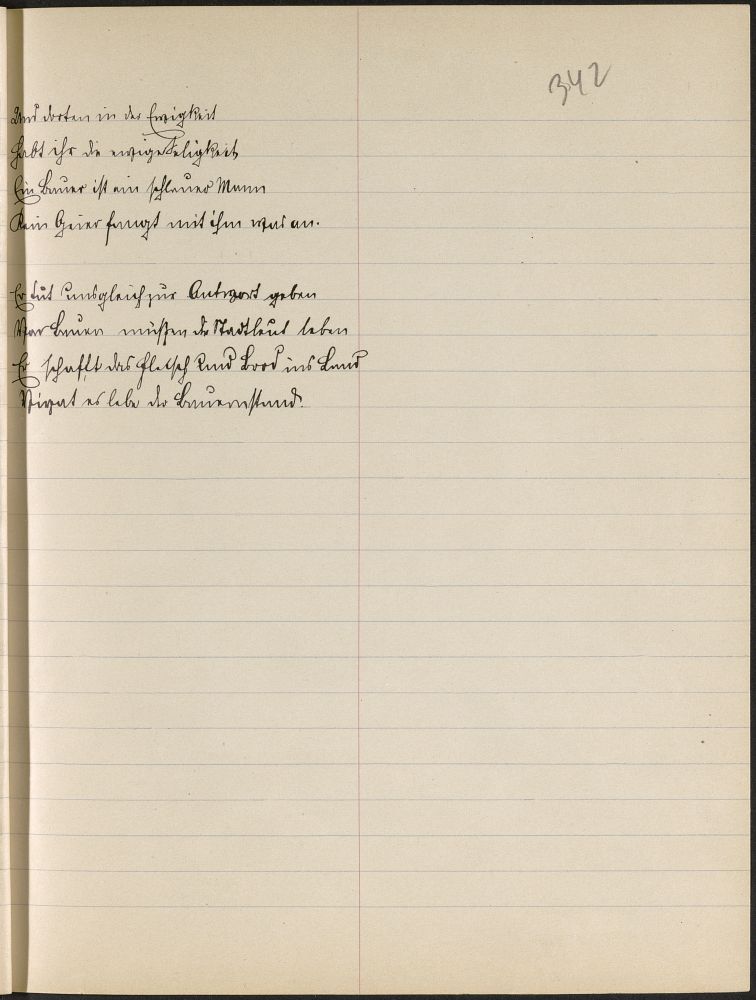 342
Und dorten in der Ewigkeit
Habt ihr die ewige Seligkeit
Ein Bauer ist ein schlauer Mann
Kein Geier fangt mit ihm was an.
Er tut uns gleich zur Antwort geben
Von Bauern müssen die Stadtleut leben
Er schafft das Fleisch und Brod ins Land
Vivat es lebe der Bauernstand.